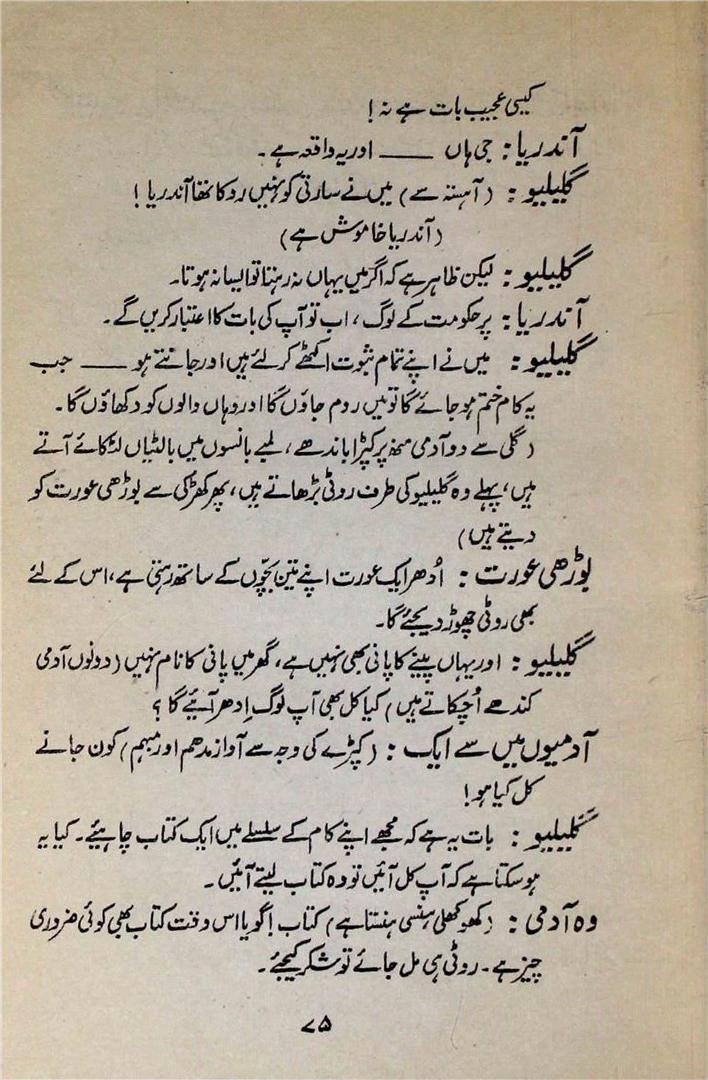 کیسی عجیب بات ہے نہ !
آندریا : جی ہاں —— اور یہ واقعہ ہے ۔
گلیلیو : ( آہستہ سے ) میں نے سارتی کو نہیں روکا تھا آندریا !
( آندریا خاموش ہے )
گلیلیو : لیکن ظاہر ہے کہ اگر میں یہاں نہ رہتا تو ایسا نہ ہوتا۔
آندریا : پر حکومت کے لوگ ، اب تو آپ کی بات کا اعتبار کریں گے ۔
گلیلیو : میں نے اپنے تمام ثبوت اکٹھے کر لئے ہیں اور جانتے ہو —— جب
یہ کام ختم ہو جائے گا تو میں روم جاؤں گا اور وہاں والوں کو دکھاؤں گا ۔
( گلی سے دو آدمی منہ پر کپڑا باندھے ، لمبے بانسوں میں بالٹیاں لٹکائے آتے
ہیں ، پہلے وہ گلیلیو کی طرف روٹی بڑھاتے ہیں ، پھر کھڑکی سے بوڑھی عورت کو
دیتے ہیں )
بوڑھی عورت : اُدھر ایک عورت اپنے تین بچّوں کے ساتھ رہتی ہے ، اس کے لئے
بھی روٹی چھوڑ دیجئے گا۔
گلیلیو : اور یہاں پینے کا پانی بھی نہیں ہے ، گھر میں پانی کا نام نہیں ( دونوں آدمی
کندھے اُچکاتے ہیں ) کیا کل بھی آپ لوگ اِدھر آیئے گا ؟
آدمیوں میں سے ایک : ( کپڑے کی وجہ سے آواز مدھم اور مبہم ) کون جانے
کل کیا ہو !
گلیلیو : بات یہ ہے کہ مجھے اپنے کام کے سلسلے میں ایک کتاب چاہیئے ۔ کیا یہ
ہو سکتا ہے کہ آپ کل آئیں تو وہ کتاب لیتے آئیں ۔
وہ آدمی : ( کھوکھلی ہنسی ہنستا ہے ) کتاب ! گویا اس وقت کتاب بھی کوئی ضروری
چیز ہے ۔ روٹی ہی مل جائے تو شکر کیجئے ۔
۷۵